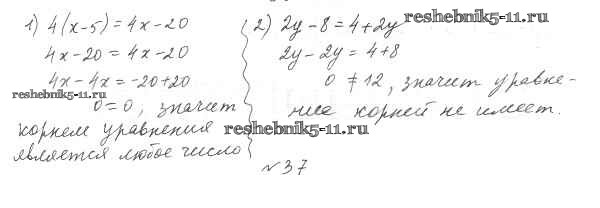 1) 4(x-5)=4x-20
4x-20=4x-20
4x-4x=-20+20
0=0, значит
корнем уравнения
является любое число
2) 2y-8=4+2y
2y-2y=4+8
0≠12, значит уравне-
ние корней не имеет.
№37
reshebnik5-11.ru
reshebnik5-11.ru
reshebnik5-11.ru